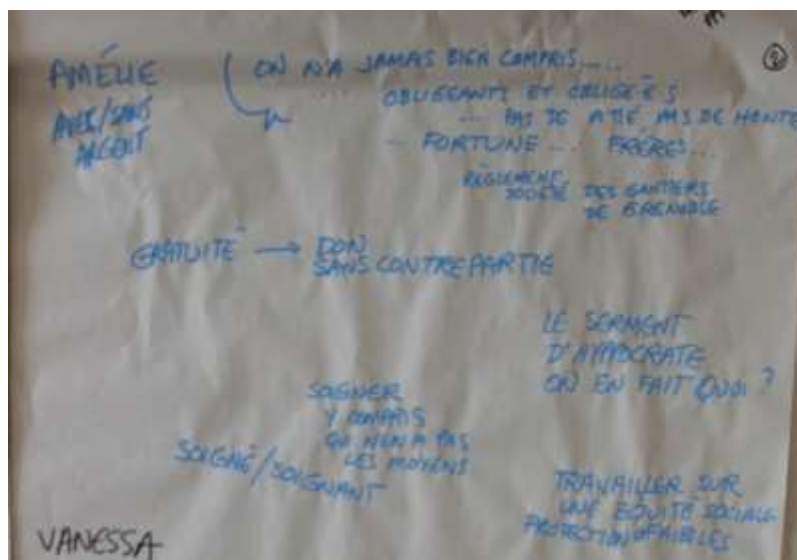 ②
AMÉLIE
AVEC/SANS
ARGENT
ON N'A JAMAIS BIEN COMPRIS.....
.... OBLIGEANTS ET OBLIGÉ·E·S
... PAS DE PITIÉ, PAS DE HONTE
... FORTUNE ... FRÈRES ...
RÈGLEMENT
SOCIÉTÉ DES GANTIERS
DE GRENOBLE
GRATUITÉ → DON
SANS CONTREPARTIE
LE SERMENT
D'HYPPOCRATE
ON EN FAIT QUOI ?
SOIGNER
Y COMPRIS
QUI N'EN A PAS
LES MOYENS
SOIGNÉ/SOIGNANT
TRAVAILLER SUR
UNE ÉQUITÉ SOCIALE
PROTECTION FAIBLES
VANESSA